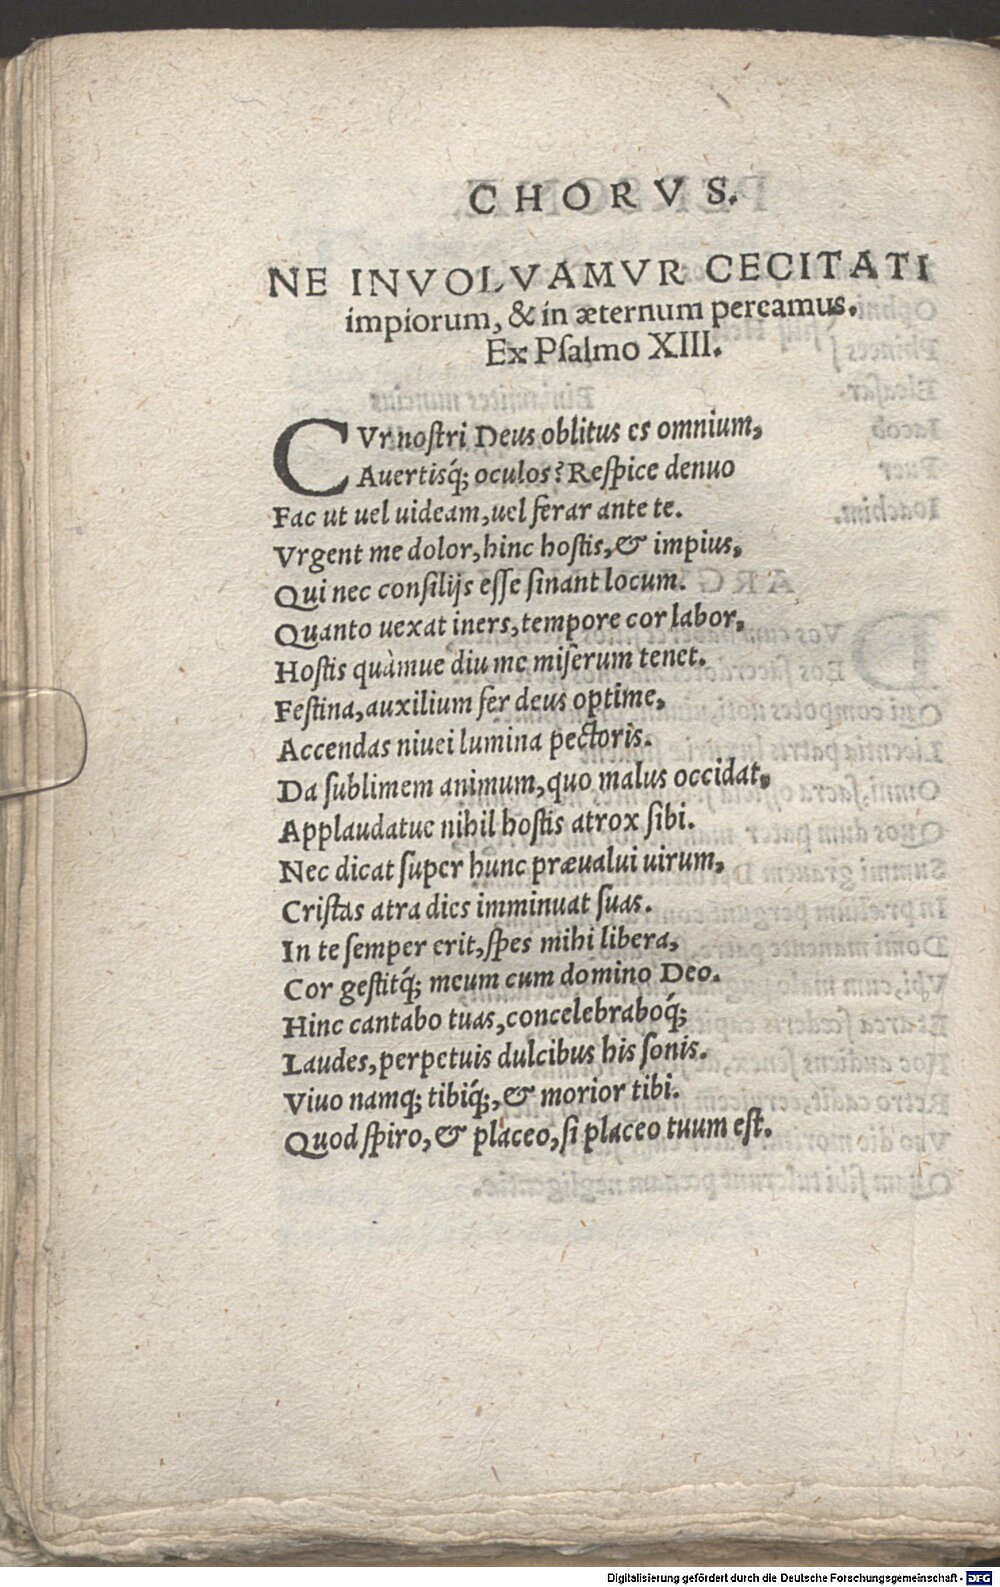 CHORVS.
NE INVOLVAMVR CECITATI
impiorum, & in æternum pereamus.
Ex Psalmo XIII.
CVr nostri Deus oblitus es omnium,
Auertisq́; oculos? Respice denuo
Fac ut uel uideam, uel ferar ante te.
Vrgent me dolor, hinc hostis, & impius,
Qui nec consilijs esse sinant locum.
Quanto uexat iners, tempore cor labor,
Hostis quàmue diu me miserum tenet.
Festina, auxilium fer deus optime,
Accendas niuei lumina pectoris.
Da sublimem animum, quo malus occidat,
Applaudatue nihil hostis atrox sibi.
Nec dicat super hunc præualui uirum,
Cristas atra dies imminuat suas.
In te semper erit, spes mihi libera,
Cor gestitq́; meum cum domino Deo.
Hinc cantabo tuas, concelebraboq́;
Laudes, perpetuis dulcibus his sonis.
Viuo namq; tibiq́;, & morior tibi.
Quod spiro, & placeo, si placeo tuum est.
Digitalisierung gefördert durch die Deutsche Forschungsgemeinschaft - DFG